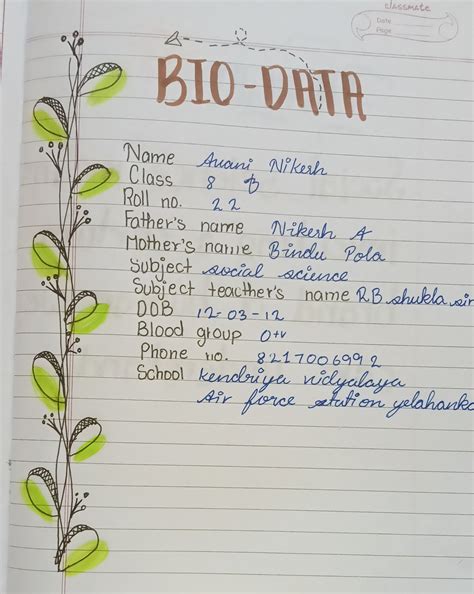 classmate
Date
Page
BIO-DATA
Name Avani Nikesh
Class 8 B
Roll no. 22
Father's name Nikesh A
Mother's name Bindu Pola
Subject social science
Subject teacther's name RB shukla sir
DOB 12-03-12
Blood group O+v
Phone no. 8217006992
School kendriya vidyalaya
Air force station yelahanka